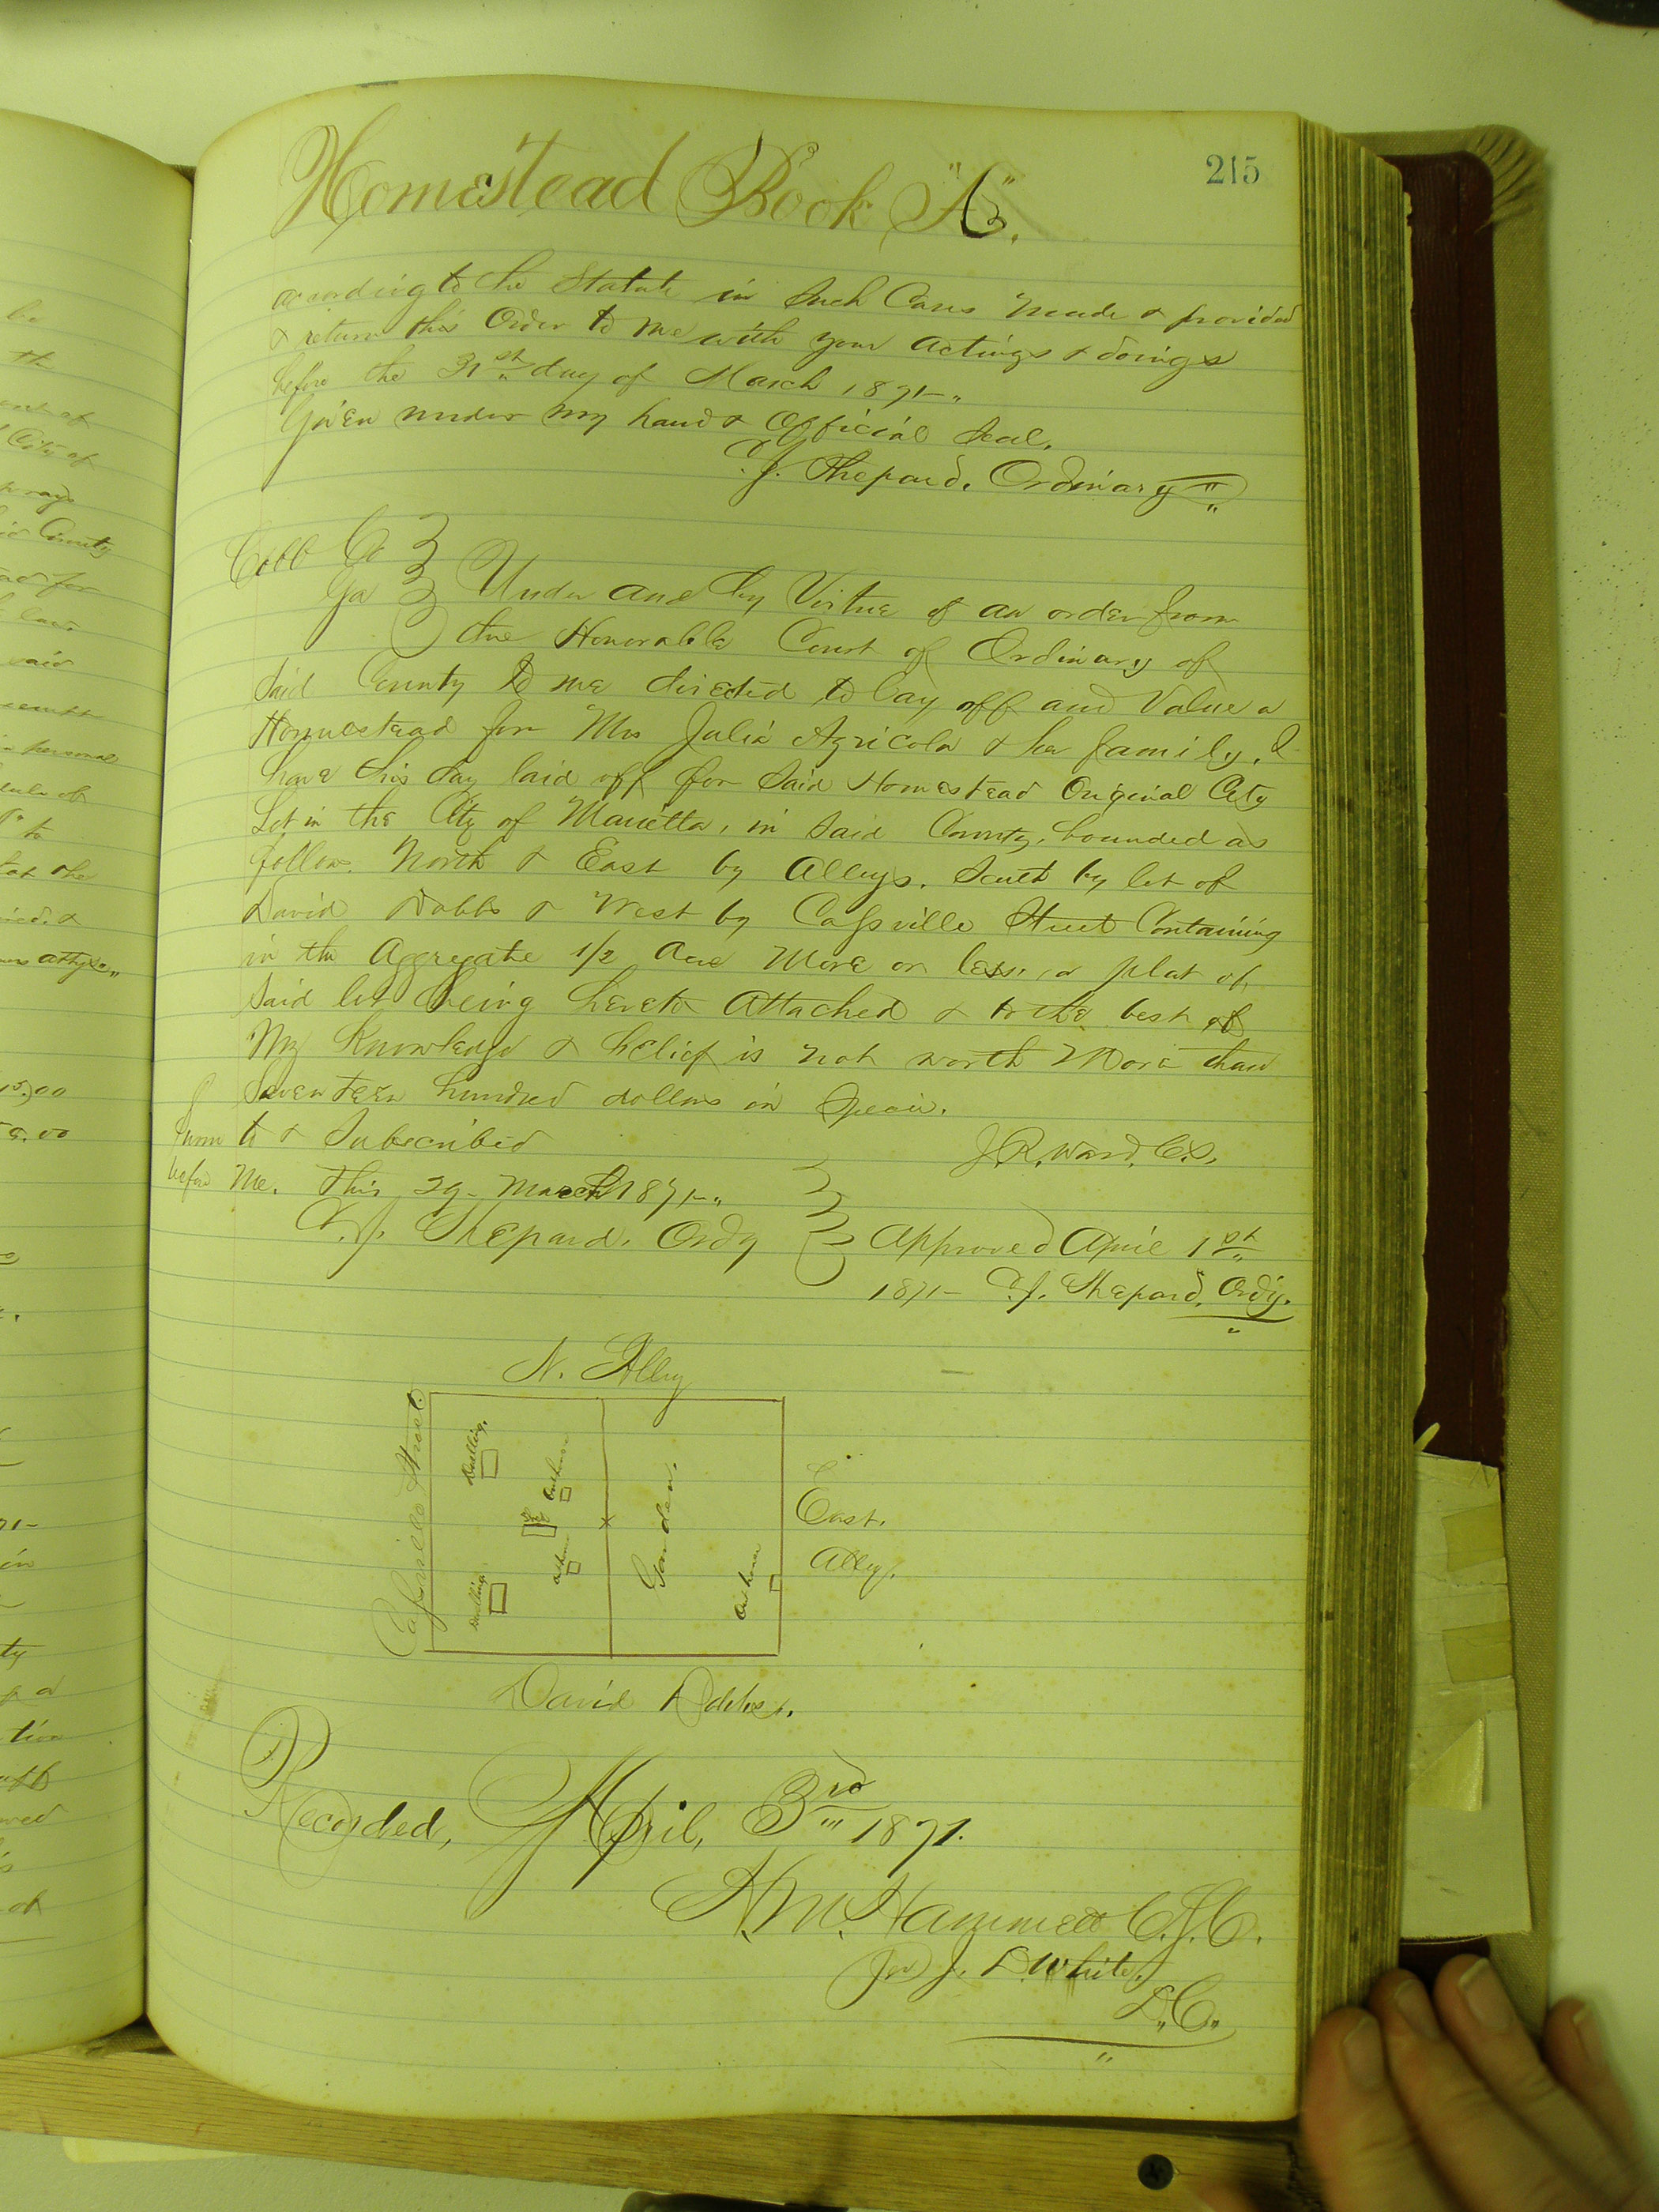 215
Homestead Book "A".
according to the Statute in Such Cases made & provided
& return this Order to me with your actings & doings
before the 31st day of March 1871-.
Given under my hand & Official Seal.
C.J. Shepard, Ordinary
Cobb Co
Ga Under and by Virtue of an order from
the Honorable Court of Ordinary of
Said County to me directed to lay off and Value a
Homestead for Mrs Julia Agricola & her family, I
have this day laid off for Said Homestead Original City
Lot in the City of Marietta, in Said County, bounded as
follows. North & East by Alleys. South by lot of
David Dobbs & West by Cassville Street Containing
in the Aggregate 1/2 Acre More or less, a plat of
Said lot being hereto Attached & to the best of
My Knowledge & belief is not worth More than
Seventeen hundred dollars in Specie.
Sworn to & Subscribed J.R. Ward, C.S.
before Me. this 29- March 1871-.
C.J. Shepard. Ordy Approved April 1st
1871- C.J. Shepard, Ordy.
N. Alley
Cassville Street
Dwelling.
Outhouse
Dwelling
Garden.
Outhouse
East.
Alley.
David Dobbs.
Recorded, April, 3rd 1871.
H.M. Hammett C.S.C.
Per J. D. White,
D.C.
be
th
City of
County
law.
said
personal
to
at the
00
00
71-
in
ty
tion
of